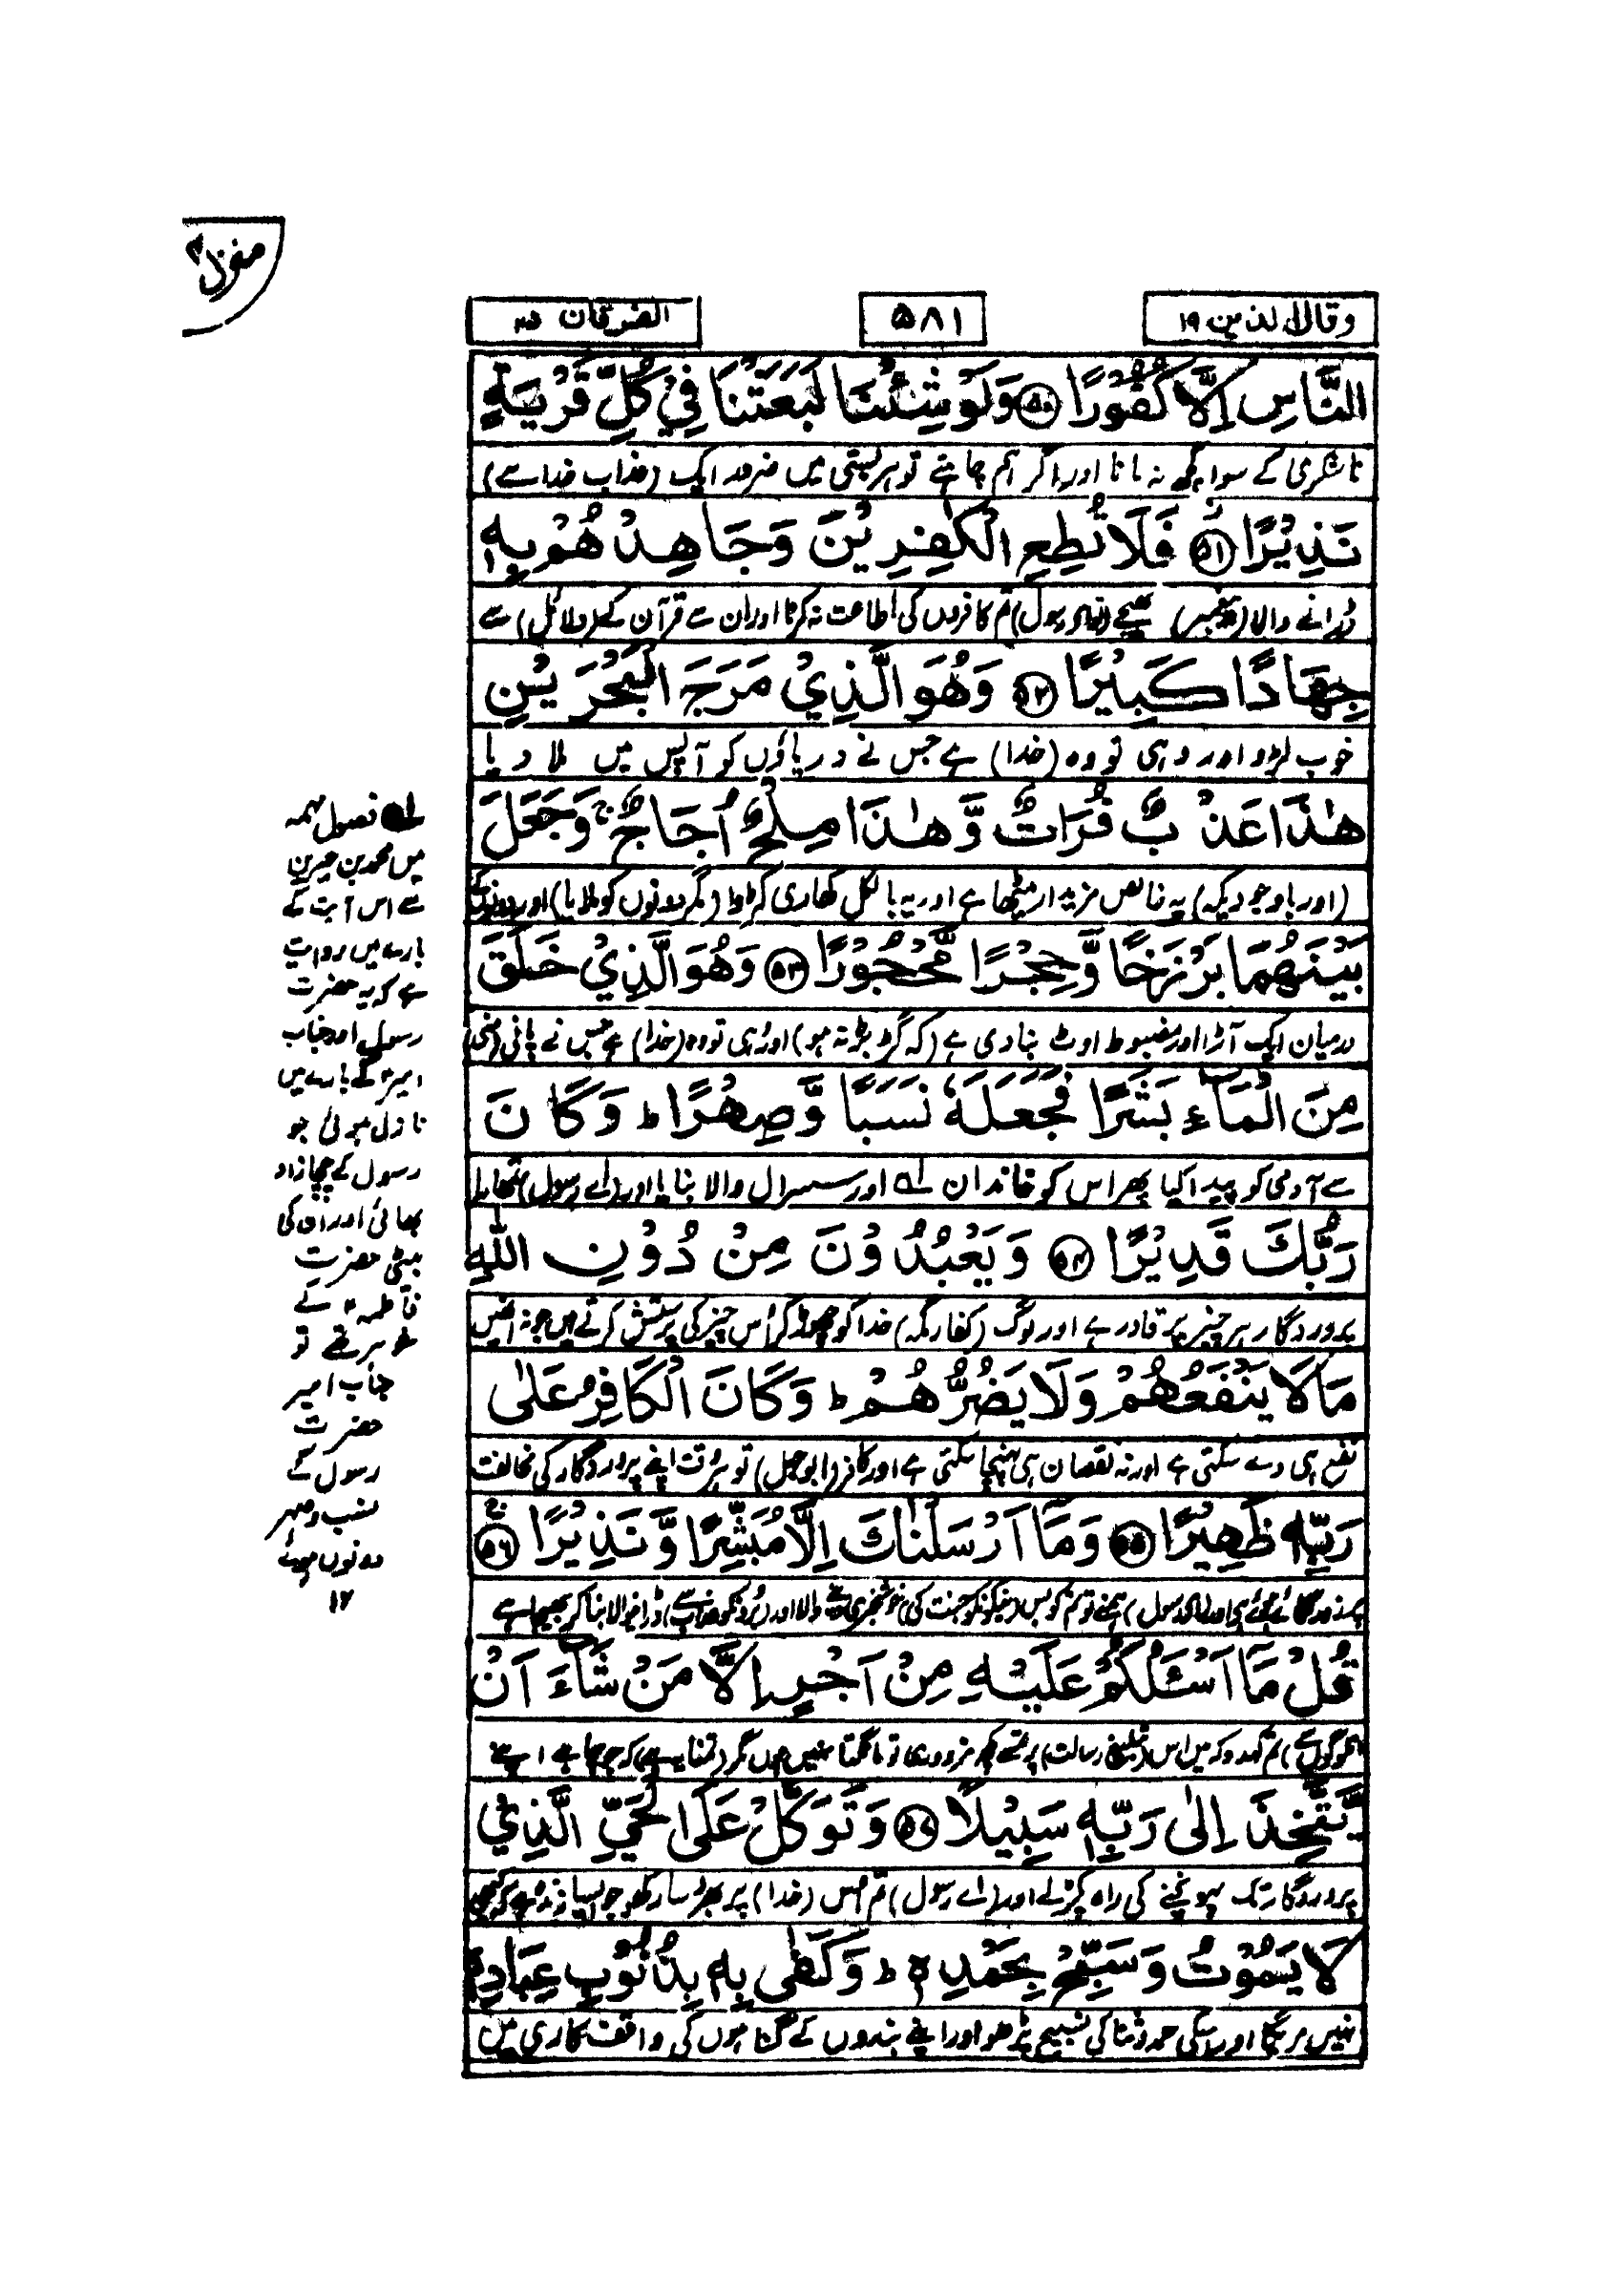 منزل ۴
وقال الذین ۱۹
۵۸۱
الفرقان ۲۵
النَّاسِ اِلَّا كُفُوْرًا ۵۰ وَلَوْ شِئْنَا لَبَعَثْنَا فِيْ كُلِّ قَرْيَةٍ
ناشکری کے سوا کچھ نہ مانا اور اگر ہم چاہتے تو ہر بستی میں ضرور ایک (عذاب خدا سے)
نَذِيْرًا ۵۱ فَلَا تُطِعِ الْكٰفِرِيْنَ وَجَاهِدْهُمْ بِهٖ
ڈرانے والا (پیغمبر) بھیجتے (تو اے رسول) تم کافروں کی اطاعت نہ کرنا اور ان سے قرآن کے (دلائل) سے
جِهَادًا كَبِيْرًا ۵۲ وَهُوَ الَّذِيْ مَرَجَ الْبَحْرَيْنِ
خوب لڑو اور وہی تو وہ (خدا) ہے جس نے دریاؤں کو آپس میں ملا دیا
هٰذَا عَذْبٌ فُرَاتٌ وَّهٰذَا مِلْحٌ اُجَاجٌ ج وَجَعَلَ
(اور باوجودیکہ) یہ خالص مزیدار میٹھا ہے اور یہ بالکل کھاری کڑوا (مگر دونوں کو ملایا) اور دونوں کے
بَيْنَهُمَا بَرْزَخًا وَّحِجْرًا مَّحْجُوْرًا ۵۳ وَهُوَ الَّذِيْ خَلَقَ
درمیان ایک آڑ اور مضبوط اوٹ بنا دی ہے (کہ گڑبڑ نہ ہو) اور وہی تو وہ (خدا) ہے جس نے پانی (منی)
مِنَ الْمَآءِ بَشَرًا فَجَعَلَهٗ نَسَبًا وَّصِهْرًا ط وَكَانَ
سے آدمی کو پیدا کیا پھر اس کو خاندان لے اور سسرال والا بنایا اور (اے رسول) تمہارا
رَبُّكَ قَدِيْرًا ۵۴ وَيَعْبُدُوْنَ مِنْ دُوْنِ اللّٰهِ
پروردگار ہر چیز پر قادر ہے اور لوگ (کفار مکہ) خدا کو چھوڑ کر اُس چیز کی پرستش کرتے ہیں جو نہ انھیں
مَا لَا يَنْفَعُهُمْ وَلَا يَضُرُّهُمْ ط وَكَانَ الْكَافِرُ عَلٰى
نفع ہی دے سکتی ہے اور نہ نقصان ہی پہنچا سکتی ہے اور کافر (ابوجہل) تو ہر وقت اپنے پروردگار کی مخالفت
رَبِّهٖ ظَهِيْرًا ۵۵ وَمَآ اَرْسَلْنٰكَ اِلَّا مُبَشِّرًا وَّنَذِيْرًا ۵۶
پر زور لگائے ہوئے ہے اور (اے رسول) ہم نے تو تم کو بس (نیکوں کو جنت کی) خوشخبری دینے والا اور (بروں کو عذاب سے) ڈرانے والا بنا کر بھیجا ہے
قُلْ مَآ اَسْئَلُكُمْ عَلَيْهِ مِنْ اَجْرٍ اِلَّا مَنْ شَآءَ اَنْ
لوگوں سے) تم کہدو کہ میں اس (تبلیغ رسالت) پر تم سے کچھ مزدوری تو مانگتا نہیں ہوں مگر (تمنا یہ ہے) کہ جو چاہے اپنے
يَّتَّخِذَ اِلٰى رَبِّهٖ سَبِيْلًا ۵۷ وَتَوَكَّلْ عَلَى الْحَيِّ الَّذِيْ
پروردگار تک پہونچنے کی راہ پکڑ لے اور (اے رسول) تم اس (خدا) پر بھروسا رکھو جو ایسا زندہ ہے کہ کبھی
لَا يَمُوْتُ وَسَبِّحْ بِحَمْدِهٖ ط وَكَفٰى بِهٖ بِذُنُوْبِ عِبَادِهٖ
نہیں مریگا اور اسکی حمد و ثنا کی تسبیح پڑھو اور اپنے بندوں کے گناہوں کی واقف کاری میں
لے فصول مہمہ
میں محمد بن سیرین
سے اس آیت کے
بارے میں روایت
ہے کہ یہ حضرت
رسول اور جناب
امیر کے بارے میں
نازل ہوئی جو
رسول کے چچازاد
بھائی اور ان کی
بیٹی حضرت
فاطمہ کے
شوہر تھے تو
جناب امیر
حضرت
رسول کے
نسب و صہر
دونوں ہوئے
۱۲